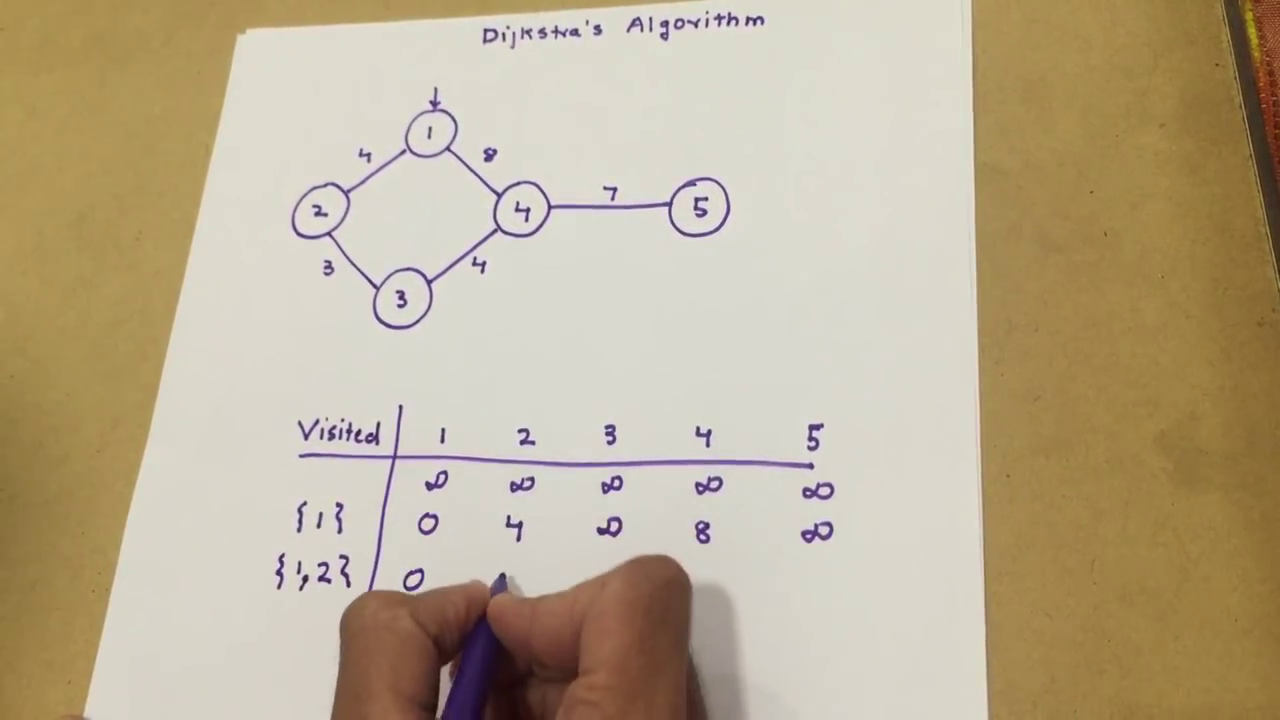 Dijkstra's Algorithm
1
4 8
2 4 7 5
3 4
3
Visited 1 2 3 4 5
∞ ∞ ∞ ∞ ∞
{1} 0 4 ∞ 8 ∞
{1,2} 0